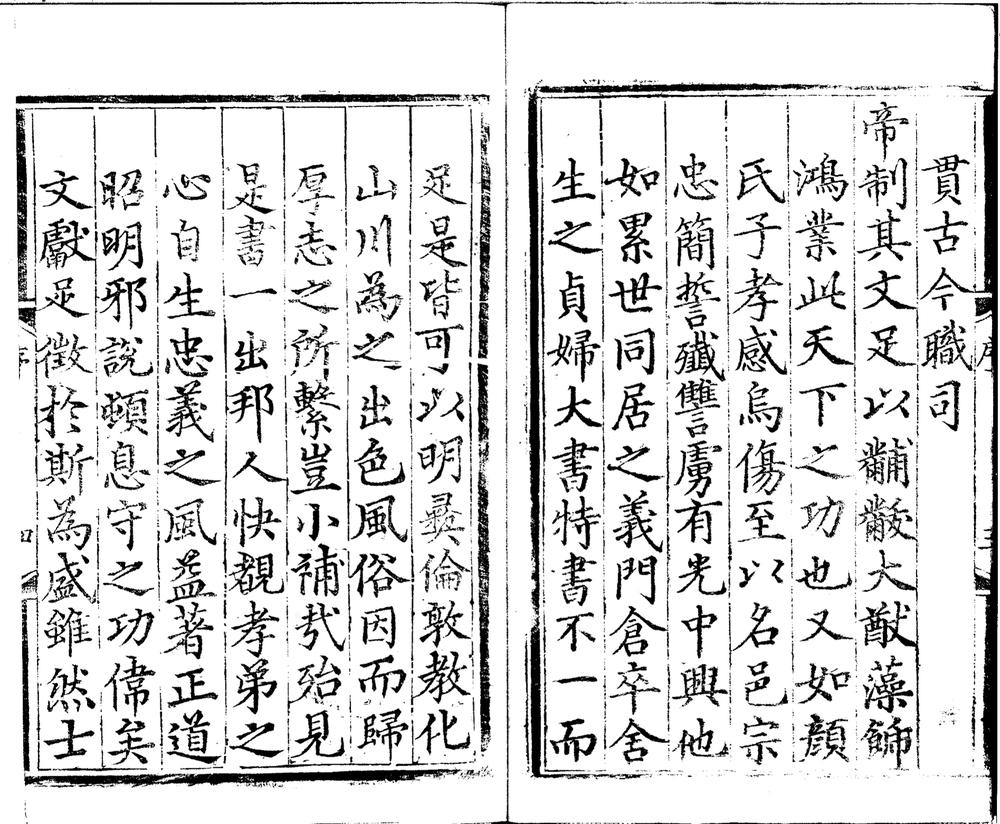 貫古今職司
帝制其文足以黼黻大猷藻飾
鴻業此天下之功也又如顏
氏子孝感烏傷至以名邑宗
忠簡誓殲讐虜有光中興他
如累世同居之義門倉卒舍
生之貞婦大書特書不一而
足是皆可以明彛倫敦教化
山川為之出色風俗因而歸
厚志之所繫豈小補㢤殆見
是書一出邦人快覩孝弟之
心自生忠義之風益著正道
昭明邪說頓息守之功偉矣
文獻足徵於斯為盛雖然士
序
四
序
三